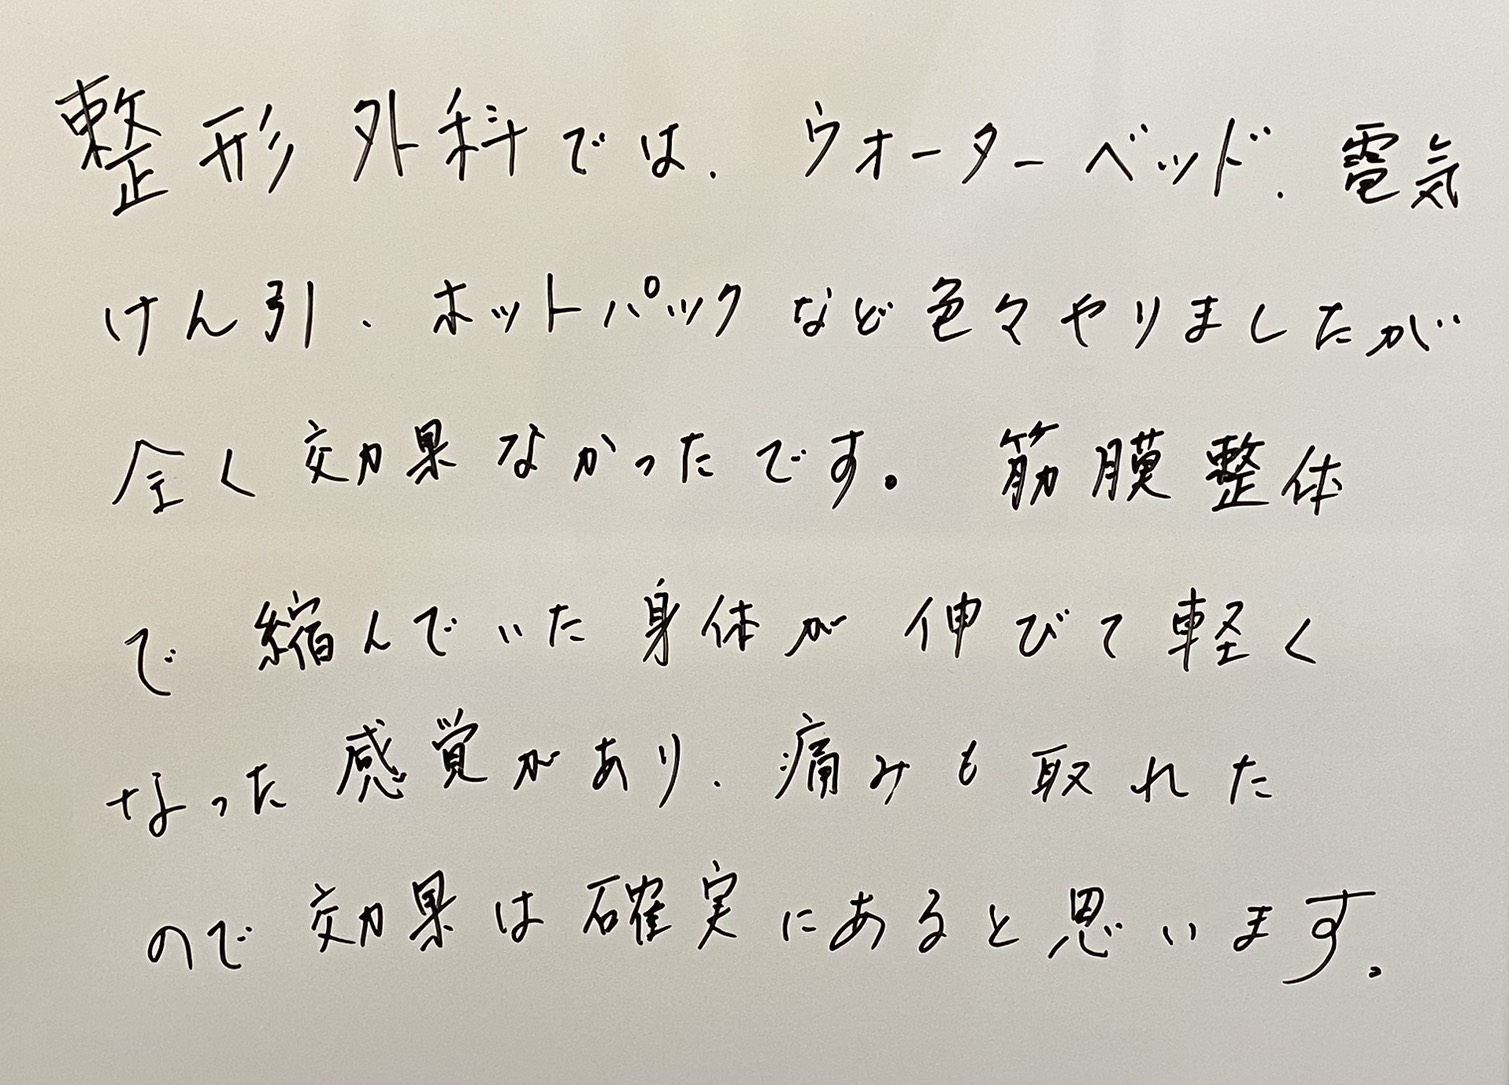 整形外科では、ウォーターベッド、電気
けん引、ホットパックなど色々やりましたが
全く効果なかったです。筋膜整体
で縮んでいた身体が伸びて軽く
なった感覚があり、痛みも取れた
ので効果は確実にあると思います。